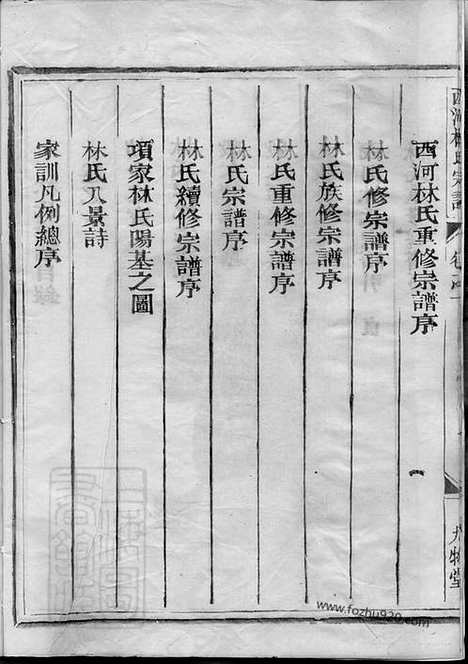 西河林氏宗譜
卷之一
九牧堂
西河林氏重修宗譜序
林氏修宗譜序
林氏族修宗譜序
林氏重修宗譜序
林氏宗譜序
林氏續修宗譜序
項家林氏陽基之圖
林氏八景詩
家訓凡例總序
www.fozhu920.com